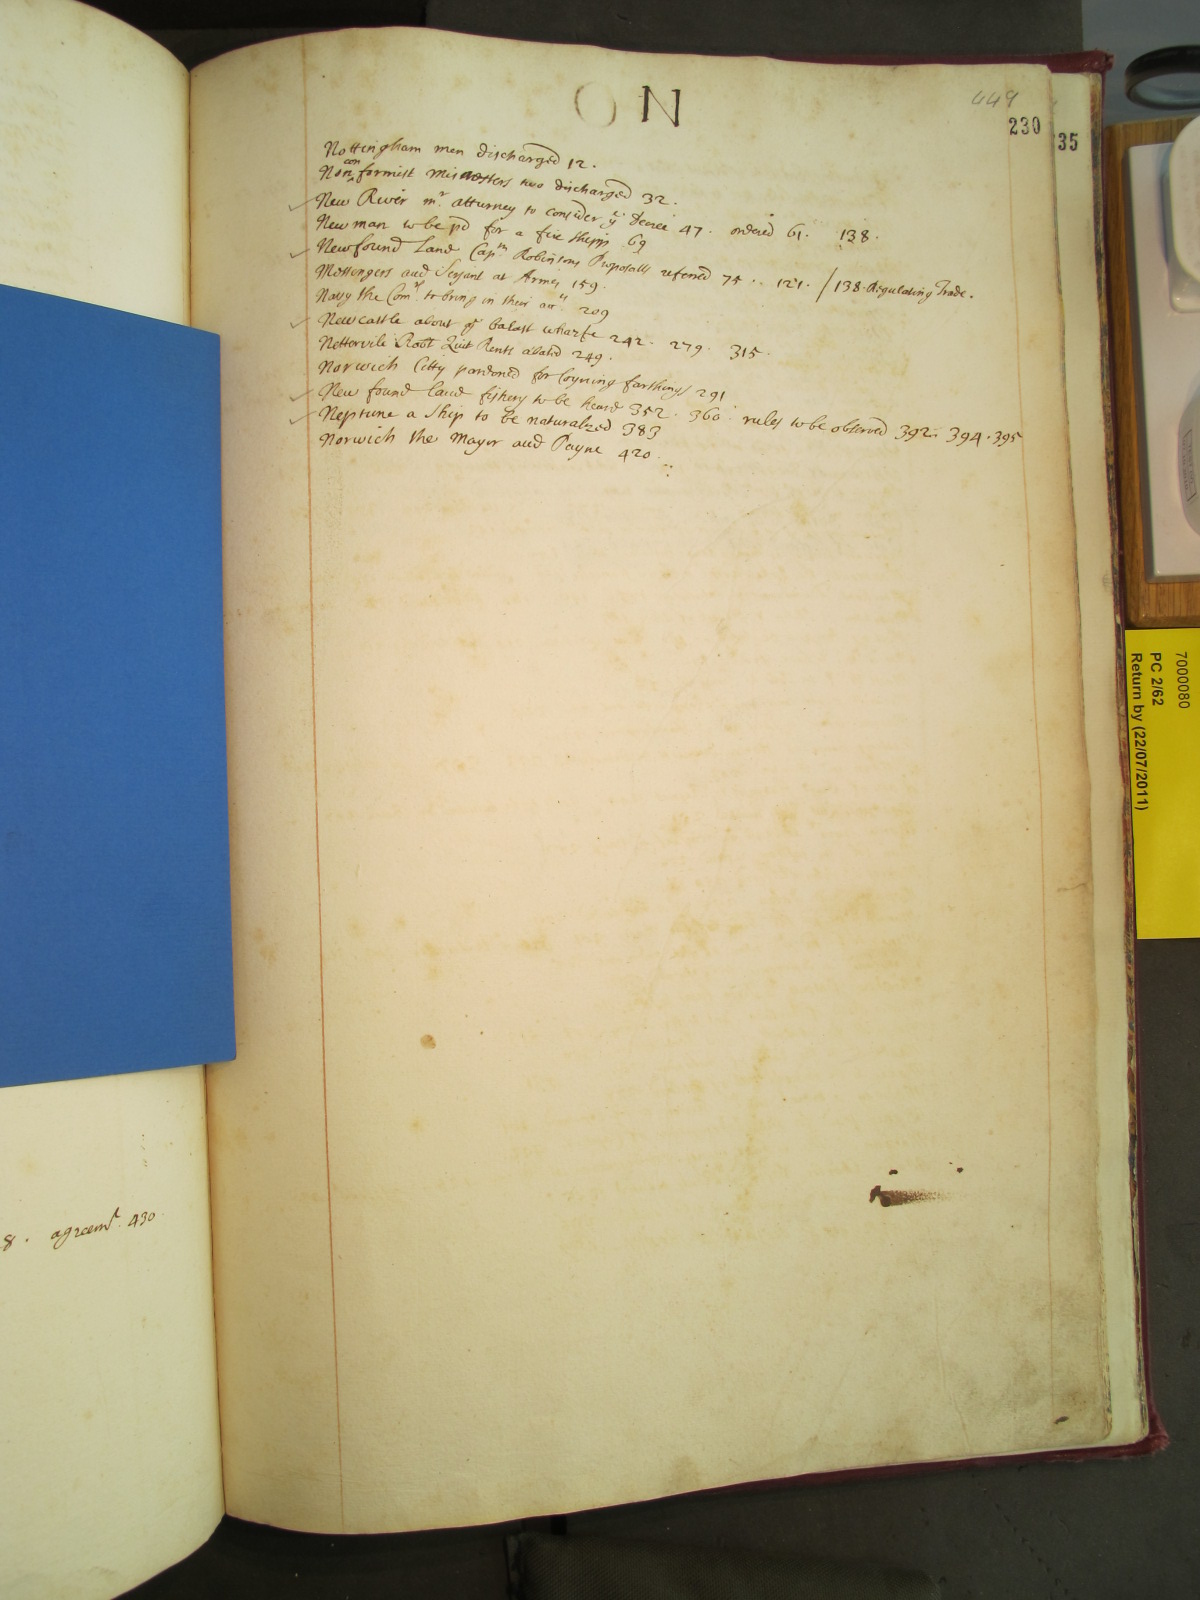 O N
449
230
35
Nottingham men discharged 12.
Non con formist Ministers two discharged 32.
New River mr. atturney to consider ye Decree 47. ordered 61. 138.
Newman to be pd for a fire shipp 69
Newfound Land Capm Robinsons Proposalls referred 75.. 121. / 138 Regulating Trade.
Messengers and Serjant at Armes 159.
Navy the Comrs. to bring in their acts 209
Newcastle about ye balast wharfe 242. 279. 315.
Nettervile Robt Quit Rents abated 249.
Norwich Citty pardoned for Coyning farthings 291
New found land fishery to be heard 352. 360. rules to be observed 392. 394. 395
Neptune a ship to be naturalized 383
Norwich the Mayor and Payne 420.
8. agreemt. 430
7000080
PC 2/62
Return by (22/07/2011)